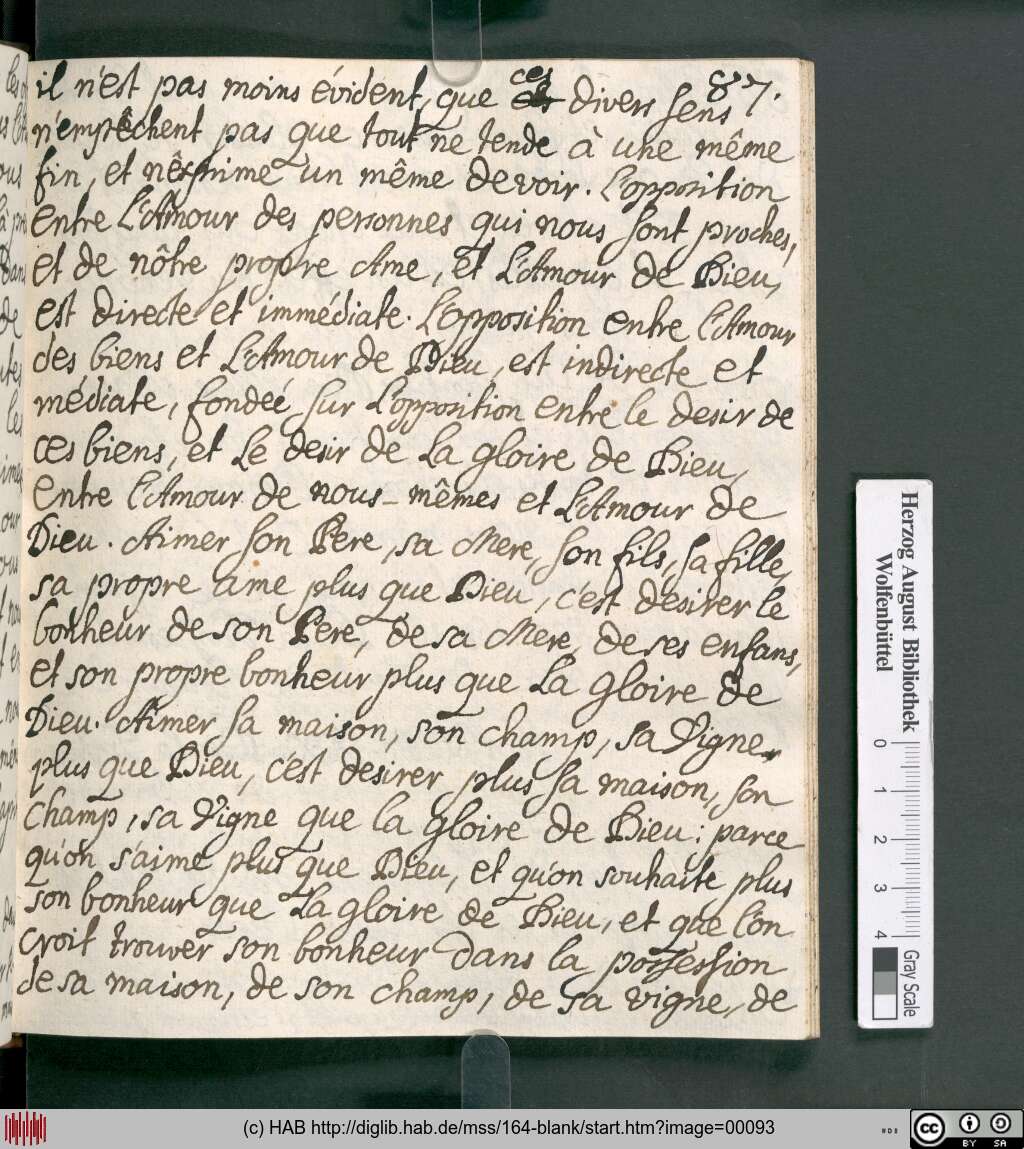 87.
il n'est pas moins évident, que ces divers sens
n'empêchent pas que tout ne tende à une même
fin, et n'exprime un même devoir. L'opposition
entre L'Amour des personnes qui nous sont proches,
et de nôtre propre Ame, et L'Amour de Dieu,
est directe et immédiate. L'opposition entre l'Amour
des biens et L'Amour de Dieu, est indirecte et
médiate, fondée sur L'opposition entre le desir de
ces biens, et Le desir de La gloire de Dieu,
entre l'Amour de nous-mêmes et L'Amour de
Dieu. Aimer son Pere, sa Mere, son fils, sa fille,
sa propre ame plus que Dieu, c'est désirer le
bonheur de son Pere, de sa Mere, de ses enfans,
et son propre bonheur plus que La gloire de
Dieu. Aimer sa maison, son champ, sa Vigne,
plus que Dieu, c'est desirer plus sa maison, son
Champ, sa Vigne que la gloire de Dieu: parce
qu'on s'aime plus que Dieu, et qu'on souhaite plus
son bonheur que La gloire de Dieu, et que l'on
croit trouver son bonheur dans la possession
de sa maison, de son champ, de sa vigne, de
Herzog August Bibliothek
Wolfenbüttel
0 1 2 3 4
Gray Scale
(c) HAB http://diglib.hab.de/mss/164-blank/start.htm?image=00093
cc BY SA